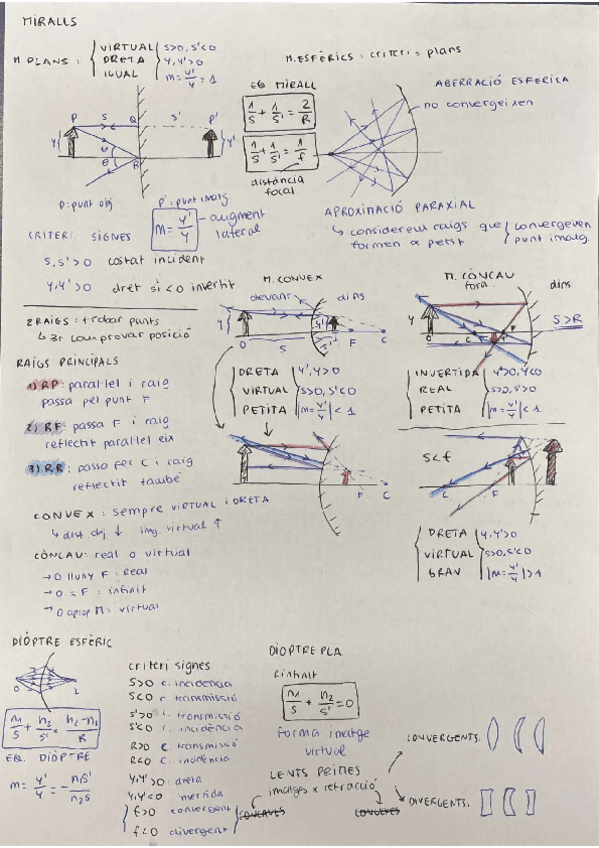 MIRALLS
M PLANS :
VIRTUAL
DRETA
IGUAL
S>0, S'<0
Y,Y'>0
m = Y'/Y = 1
M. ESFÈRICS : criteri = plans
EQ MIRALL
1/S + 1/S' = 2/R
1/S + 1/S' = 1/f
distància
focal
ABERRACIÓ ESFERICA
no convergeixen
P S Q S' P'
Y Y'
θ
θ R
P: punt obj
P': punt imatg
m = Y'/Y
augment
lateral
CRITERI SIGNES
S, S' > 0 costat incident
Y, Y' > 0 dret si < 0 invertit
APROXIMACIÓ PARAXIAL
↳ considerem raigs que
formen α petit
convergeixen
punt imatg.
2 RAIGS: trobar punts
↳ 3r comprovar posició
RAIGS PRINCIPALS
1) RP: paral·lel i raig
passa pel punt F
2) RF: passa F i raig
reflectit paral·lel eix
3) RR: passa per C i raig
reflectit també
M. CONVEX
devant dins
Y O S Y' S' F C
DRETA
VIRTUAL
PETITA
Y',Y>0
S>0, S'<0
|m = Y'/Y| < 1
F C
M. CÒNCAU
fora dins
Y O C F
S>R
INVERTIDA
REAL
PETITA
Y'>0, Y<0
S>0, S'>0
|m = Y'/Y| < 1
S<f
C F
DRETA
VIRTUAL
GRAN
Y,Y'>0
S>0, S'<0
|m = Y'/Y| > 1
CONVEX : sempre VIRTUAL i DRETA
↳ dist. obj ↓ img. virtual ↑
CÒNCAU: real o virtual
→ O lluny F : Real
→ O = F : infinit
→ O aprop M : virtual
DIÒPTRE ESFÈRIC
O
n1/S + n2/S' = n2 - n1/R
EQ. DIÒPTRE
m = Y'/Y = -n1S'/n2S
criteri signes
S>0 c. incidencia
S<0 c. transmissió
S'>0 c. transmissió
S'<0 c. incidencia
R>0 c. transmissió
R<0 c. incidència
Y,Y'>0: dreta
Y,Y'<0 invertida
f>0 convergent
f<0 divergent
DIOPTRE PLA
R infinit
n1/S + n2/S' = 0
forma imatge
virtual
LENTS PRIMES
imatges x refracció
CÒNCAVES
CONVEXES
CONVERGENTS:
DIVERGENTS: